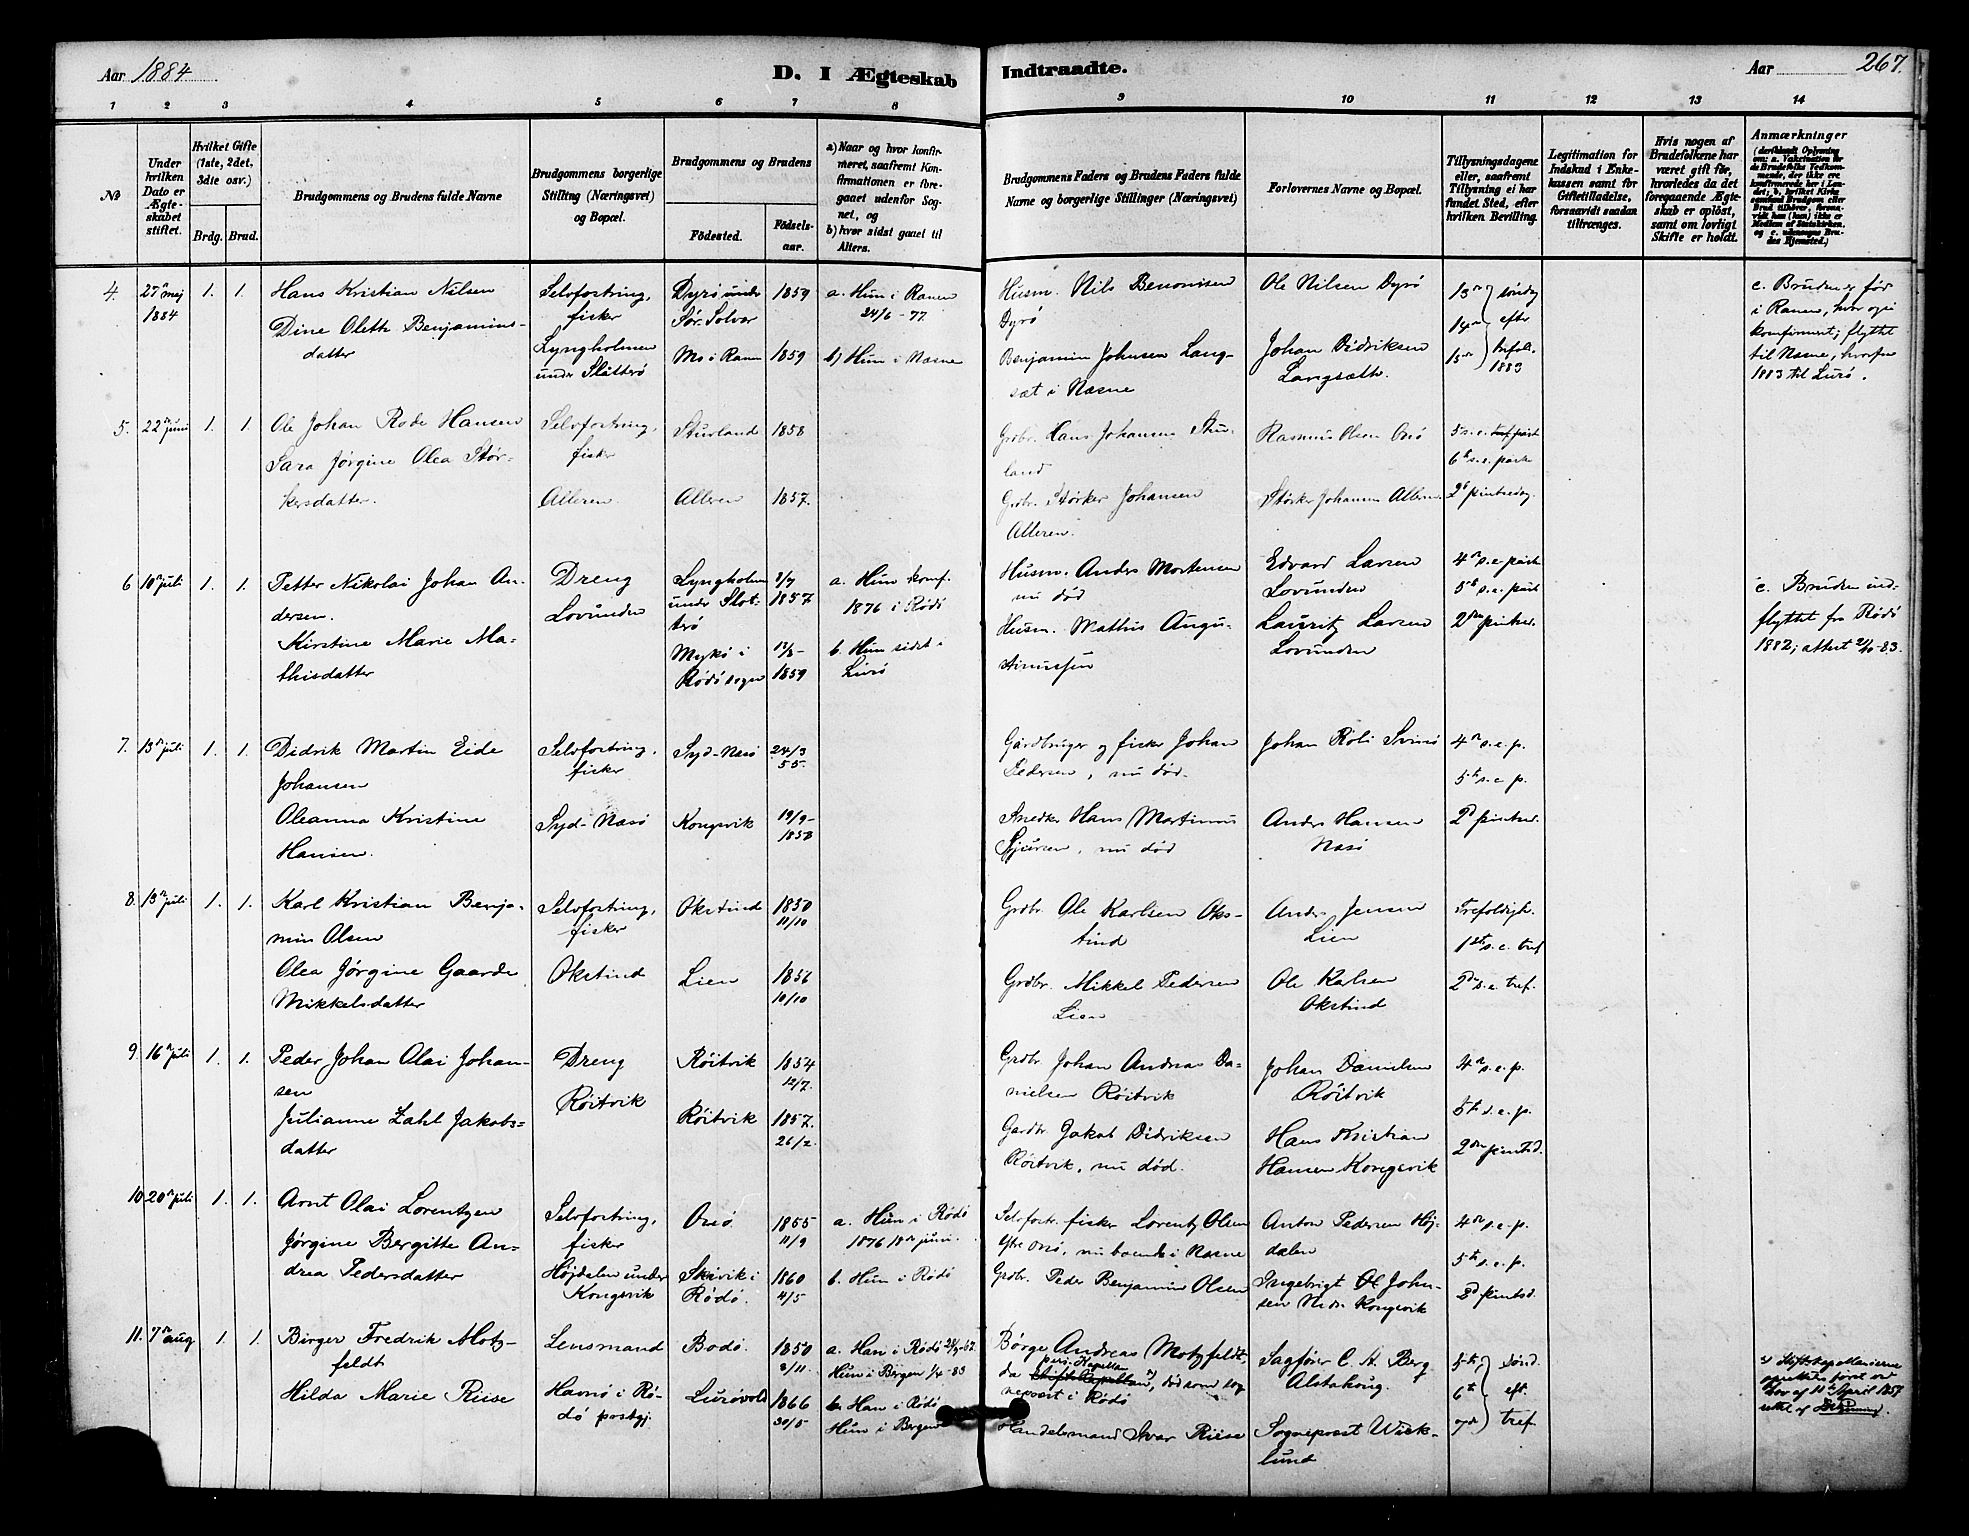 Aar 1884
D. I Ægteskab Indtraadte.
Aar 267.
1 2 3 4 5 6 7 8 9 10 11 12 13 14
No
Under hvilken Dato er Ægteskabet stiftet.
Hvilket Gifte (1ste, 2det, 3die osv.)
Brdg. Brud.
Brudgommens og Brudens fulde Navne
Brudgommens borgerlige Stilling (Næringsvei) og Bopæl.
Brudgommens og Brudens
Fødested.
Fødselsaar.
a) Naar og hvor konfirmeret, saafremt Konfirmationen er foregaaet udenfor Sognet, og
b) hvor sidst gaaet til Alters.
Brudgommens Faders og Brudens Faders fulde Navne og borgerlige Stillinger (Næringsvei)
Forlovernes Navne og Bopæl.
Tillysningsdagene eller, saafremt Tillysning ei har fundet Sted, efter hvilken Bevilling.
Legitimation for Indskud i Enkekassen samt for Giftetilladelse, forsaavidt saadan tiltrænges.
Hvis nogen af Brudefolkene har været gift før, hvorledes da det foregaaende Ægteskab er opløst, samt om lovligt Skifte er holdt.
Anmærkninger
4. 27de mej 1884 1. 1.
Hans Kristian Nilsen
Dine Oleth. Benjamins-
datter
Selvfostring,
fisker
Lyngholmen
under Slotterö
Dyrö under
Sör-Solvær 1859
Mo i Ranen 1859
a. Hun i Ranen
24/6 - 77
b) Hun i Næsne
Husm. Nils Benonisen
Dyrö
Benjamin Johnsen Lang-
sæt i Næsne
Ole Nilsen Dyrö
Johan Didriksen
Langsæth.
13de 14de 15de søndag efter trefol. 1883
c. Bruden er før
i Ranen, hvor ogsaa
konfirmeret; flyttet
til Næsne, hvorfra
1883 til Lurö.
5. 22de juni 1. 1.
Ole Johan Rode Hansen
Sara Jørgine Olea Stør-
kersdatter.
Selvfostring,
fisker
Alteren.
Stuvland 1858
Alteren 1857.
Grdbr. Hans Johansen Stu-
land
Grdbr. Størker Johansen
Alteren.
Rasmus Olsen Onö
Størker Johansen Alteren
5 s. e. paask
6te s. e. paaske
2d pintsedag
6 10de juli 1. 1.
Petter Nikolai Johan An-
dersen.
Kirstine Marie Ma-
thisdatter
Dreng
Lovunden
Lyngholmen
under Slot-
terö
1857
Mykö i
Rödö sogn
12/8 - 1859
a. Hun konf.
1876 i Rödö
b. Hun sidst i
Lurö
Husm. Anders Mortensen
nu död
Husm. Mathis Augu-
stinussen
Edvard Larsen
Lovunden
Lauritz Larsen
Lovunden
4de s. e. paask
5te s. e. paask
2den pintsed.
c. Bruden ind-
flyttet fra Rödö
1882; attest 2/10-83.
7. 13de juli 1. 1.
Didrik Martin Eide
Johansen
Oleanna Kristine
Hansen.
Selvfostring,
fisker
Syd-Næsö
Syd-Næsö 24/3 55.
Kongsvik 19/9 - 1858
Gårdbruger og fisker Johan
Pedersen, nu død.
Snedker Hans Martinus
Sjursen, nu död
Johan Röli Svinö
Anders Hansen
Næsö
4de s. e. p.
5te s. e. p.
2d pintsed.
8. 13de juli 1. 1.
Karl Kristian Benja-
min Olsen
Olea Jørgine Gaarde
Mikkelsdatter
Selvfostring,
fisker
Okstind
Okstind 1850 11/10
Lien 1856 10/10
Grdbr. Ole Karlsen Oks-
tind
Grdbr. Mikkel Pedersen
Lien
Anders Jensen
Lien
Ole Kalsen
Okstind
Trefoldigh.
1ste s. e. tref
2d s. e. tref.
9. 16de juli 1. 1.
Peder Johan Olai Johan-
sen
Julianne Zahl Jakobs-
datter
Dreng
Röitvik
Röitvik 1854 12/7.
Röitvik 1857. 26/2.
Grdbr. Johan Andreas Da-
nielsen Röitvik
Gardbr. Jakob Didriksen
Röitvik, nu död.
Johan Danielsen
Röitvik
Hans Kristian
Hansen Kongsvik
4de s. e. p.
5te s. e. p.
2den pintsd.
10. 20de juli 1. 1.
Arnt Olai Lorentzen
Jørgine Bergitte An-
drea Pedersdatter
Selvfostring,
fisker
Höjdalen under
Kongsvik
Onö 1855 11/9
Skivik i
Rödö. 1860 4/5
a. Hun i Rödö
1876 18de juni.
b. Hun i Rödö
Selvfostr. fisker Lorentz Olsen
ytre Onö, nu boende i Næsne
Grdbr. Peder Benjamin Olsen
Anton Pedersen Höj-
dalen
Ingebrigt Ol John-
sen Nedr. Kongsvik
4de s. e. p.
5te s. e. p.
2d pintsd.
11. 7de aug 1. 1.
Birger Fredrik Motz-
feldt
Hilda Marie Riise
Lensmand
Havnö i Rö-
dö postgj.
Bodö. 1850 8/11.
Luróvold 1866 30/5
a. Han i Rödö 28/9-67.
Hun i Bergen 1/4 - 83
b. Han i Rödö
Hun i Bergen
Børge Andreas Motzfeldt,
da pers. Kapellan, död som sog
neprest i Rödö
Handelsmand Ivar Riise
Sagfører C. A. Berg
Alstahoug.
Sogneprest Wick-
lund
5te 6te 7de sönd. eft. tref
Stiftskapellanierne
oprettedes først ved
Lov af 11te April 1857